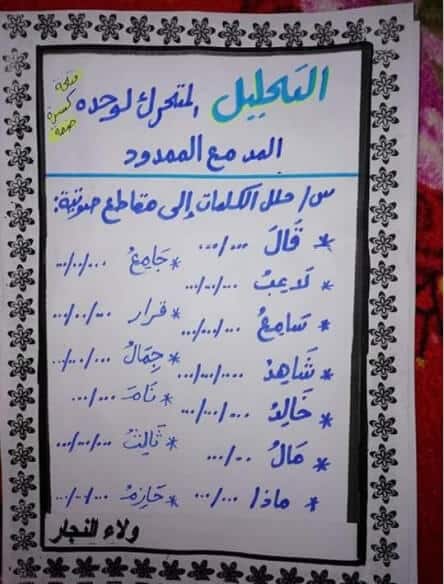 التحليل المتحرك لوحده
فتحة
كسرة
ضمة
المد مع الممدود
س/ حلل الكلمات إلى مقاطع صوتية:
* قَالَ .../...
* جَامِعُ .../.../...
* لَاعِبُ .../.../...
* قرار .../.../...
* سَامِعُ .../.../...
* جِمَالُ .../.../...
* شَاهِدُ .../.../...
* نَامَ .../...
* خَالِدُ .../.../...
* ثَالِثُ .../.../...
* مَالُ .../...
* ماذا .../...
* حَازِمُ .../.../...
ولاء النجار